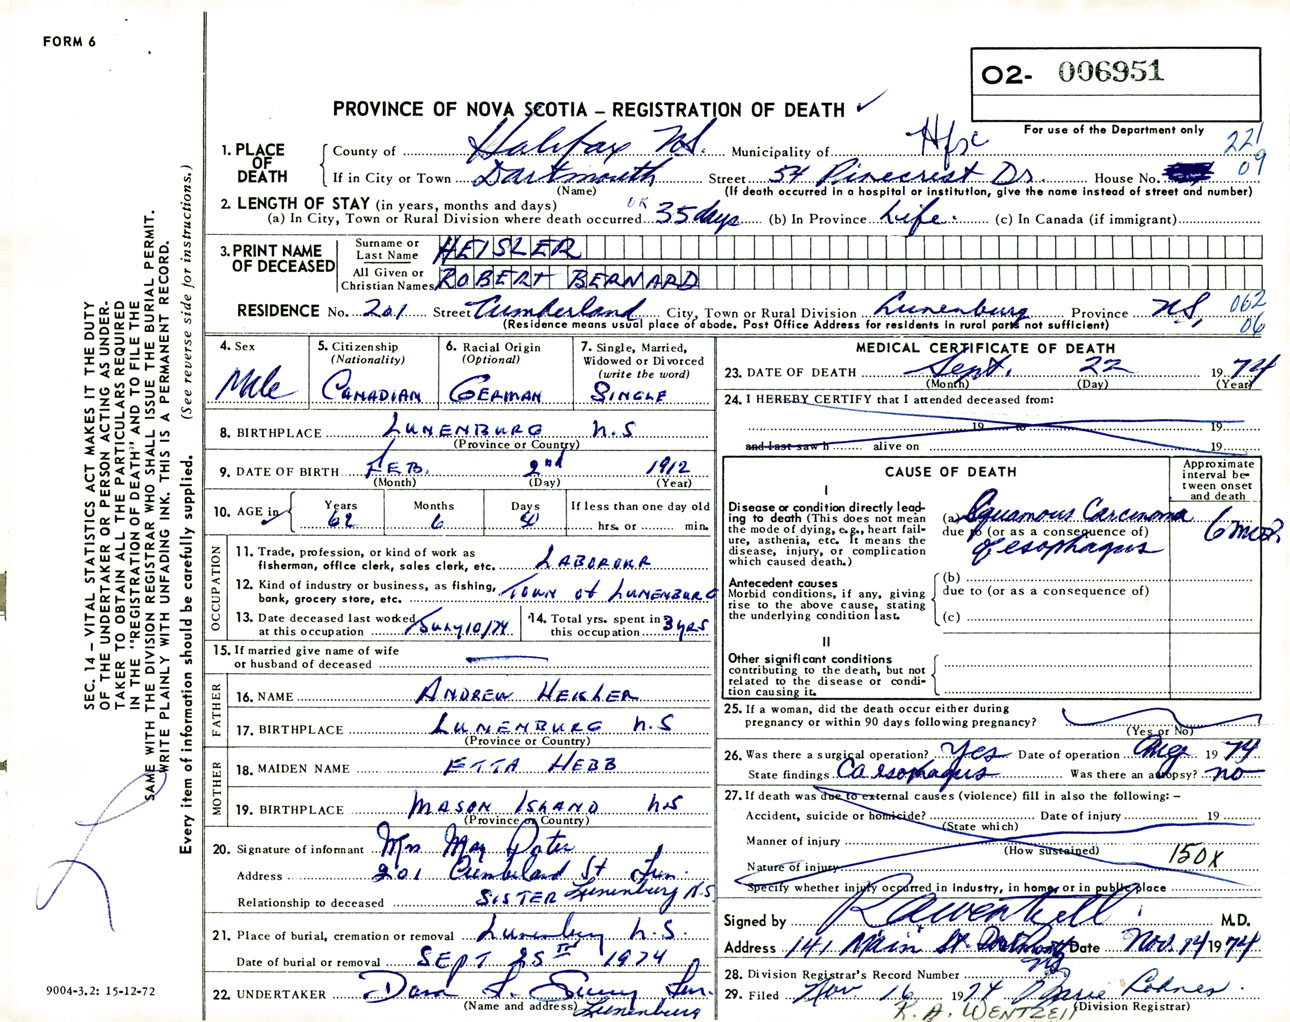 FORM 6
O2- 006951
PROVINCE OF NOVA SCOTIA – REGISTRATION OF DEATH ✓
For use of the Department only
221
09
1. PLACE OF DEATH
County of Halifax N.S. Municipality of Hfx
If in City or Town Dartmouth Street 54 Pinecrest Dr. House No.
(Name) (If death occurred in a hospital or institution, give the name instead of street and number)
2. LENGTH OF STAY (in years, months and days)
(a) In City, Town or Rural Division where death occurred OR 35 days (b) In Province Life. (c) In Canada (if immigrant)
3. PRINT NAME OF DECEASED
Surname or Last Name HEISLER
All Given or Christian Names ROBERT BERNARD
RESIDENCE No. 201 Street Cumberland City, Town or Rural Division Lunenburg Province N.S, 062
06
(Residence means usual place of abode. Post Office Address for residents in rural parts not sufficient)
4. Sex
Male
5. Citizenship
(Nationality)
CANADIAN
6. Racial Origin
(Optional)
GERMAN
7. Single, Married,
Widowed or Divorced
(write the word)
SINGLE
8. BIRTHPLACE LUNENBURG N.S
(Province or Country)
9. DATE OF BIRTH FEB. 2nd 1912
(Month) (Day) (Year)
10. AGE in
Years Months Days If less than one day old
62 6 hrs. or min.
OCCUPATION
11. Trade, profession, or kind of work as
fisherman, office clerk, sales clerk, etc. LABOROUR
12. Kind of industry or business, as fishing,
bank, grocery store, etc. TOWN OF LUNENBURG
13. Date deceased last worked
at this occupation July 10/74
14. Total yrs. spent in
this occupation 3 yrs
15. If married give name of wife
or husband of deceased —
FATHER
16. NAME ANDREW HEISLER
17. BIRTHPLACE LUNENBURG N.S
(Province or Country)
MOTHER
18. MAIDEN NAME ETTA HEBB
19. BIRTHPLACE MASON ISLAND N.S
(Province or Country)
20. Signature of informant Mrs May
Address 201 Cumberland St Lun.
Lunenburg N.S
Relationship to deceased SISTER
21. Place of burial, cremation or removal Lunenburg N.S.
Date of burial or removal SEPT 25TH 1974
22. UNDERTAKER
(Name and address) Lunenburg
MEDICAL CERTIFICATE OF DEATH
23. DATE OF DEATH Sept. 22 1974
(Month) (Day) (Year)
24. I HEREBY CERTIFY that I attended deceased from:
19 to 19
and last saw h alive on 19
CAUSE OF DEATH
Approximate
interval be-
tween onset
and death
I
Disease or condition directly lead-
ing to death (This does not mean
the mode of dying, e.g., heart fail-
ure, asthenia, etc. It means the
disease, injury, or complication
which caused death.)
(a) Squamous Carcinoma
due to (or as a consequence of)
of esophagus
6 mos?
Antecedent causes
Morbid conditions, if any, giving
rise to the above cause, stating
the underlying condition last.
(b)
due to (or as a consequence of)
(c)
II
Other significant conditions
contributing to the death, but not
related to the disease or condi-
tion causing it.
25. If a woman, did the death occur either during
pregnancy or within 90 days following pregnancy?
(Yes or No)
26. Was there a surgical operation? Yes Date of operation Aug 1974
State findings Ca esophagus Was there an autopsy? no
27. If death was due to external causes (violence) fill in also the following: –
Accident, suicide or homicide? Date of injury 19
(State which)
Manner of injury
(How sustained) 150X
Nature of injury
Specify whether injury occurred in Industry, in home, or in public place
Signed by M.D.
Address 141 Main St. Dartmouth Date Nov. 14 1974
NS
28. Division Registrar's Record Number
29. Filed Nov 16 1974 Marie Lohnes
(Division Registrar)
K. A. WENTZELL
SEC. 14 – VITAL STATISTICS ACT MAKES IT THE DUTY
OF THE UNDERTAKER OR PERSON ACTING AS UNDER-
TAKER TO OBTAIN ALL THE PARTICULARS REQUIRED
IN THE "REGISTRATION OF DEATH" AND TO FILE THE
SAME WITH THE DIVISION REGISTRAR WHO SHALL ISSUE THE BURIAL PERMIT.
WRITE PLAINLY WITH UNFADING INK. THIS IS A PERMANENT RECORD.
Every item of information should be carefully supplied. (See reverse side for instructions.)
9004-3.2: 15-12-72